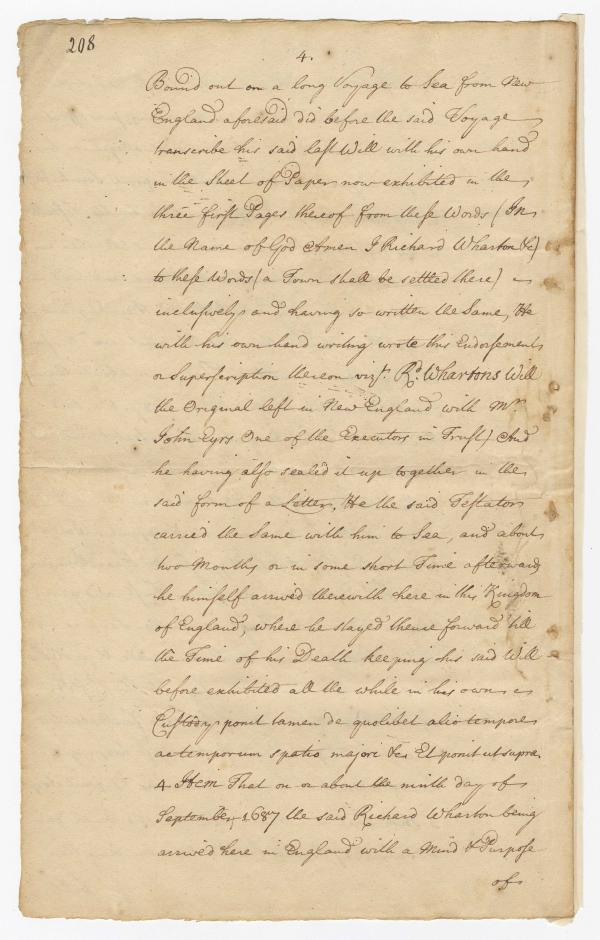 208
4.
Bound out on a long Voyage to Sea from New
England aforesaid did before the said Voyage
transcribe his said last Will with his own hand
in the Sheet of Paper now exhibited in the
three first Pages thereof from these Words (In
the Name of God Amen I Richard Wharton &c)
to these Words (a Town shall be settled there)
inclusively and having so written the Same, He
with his own hand writing wrote this Endorsement
or Superscription thereon vizt. Rd. Whartons Will
the Original left in New England with Mr.
John Eyrs One of the Executors in Trust) And
he having also sealed it up together in the
said form of a Letter, He the said Testator
carried the Same with him to Sea, and about
two Months or in some short Time afterwards
he himself arrived therewith here in this Kingdom
of England, where he stayed thence forward till
the Time of his Death keeping his said Will
before exhibited all the while in his own
Custody ponit tamen de quolibet alio tempore
ac temporum spatio majori &c Et ponit ut supra
4 Item That on or about the ninth day of
September 1687 the said Richard Wharton being
arrived here in England with a Mind & Purpose
of